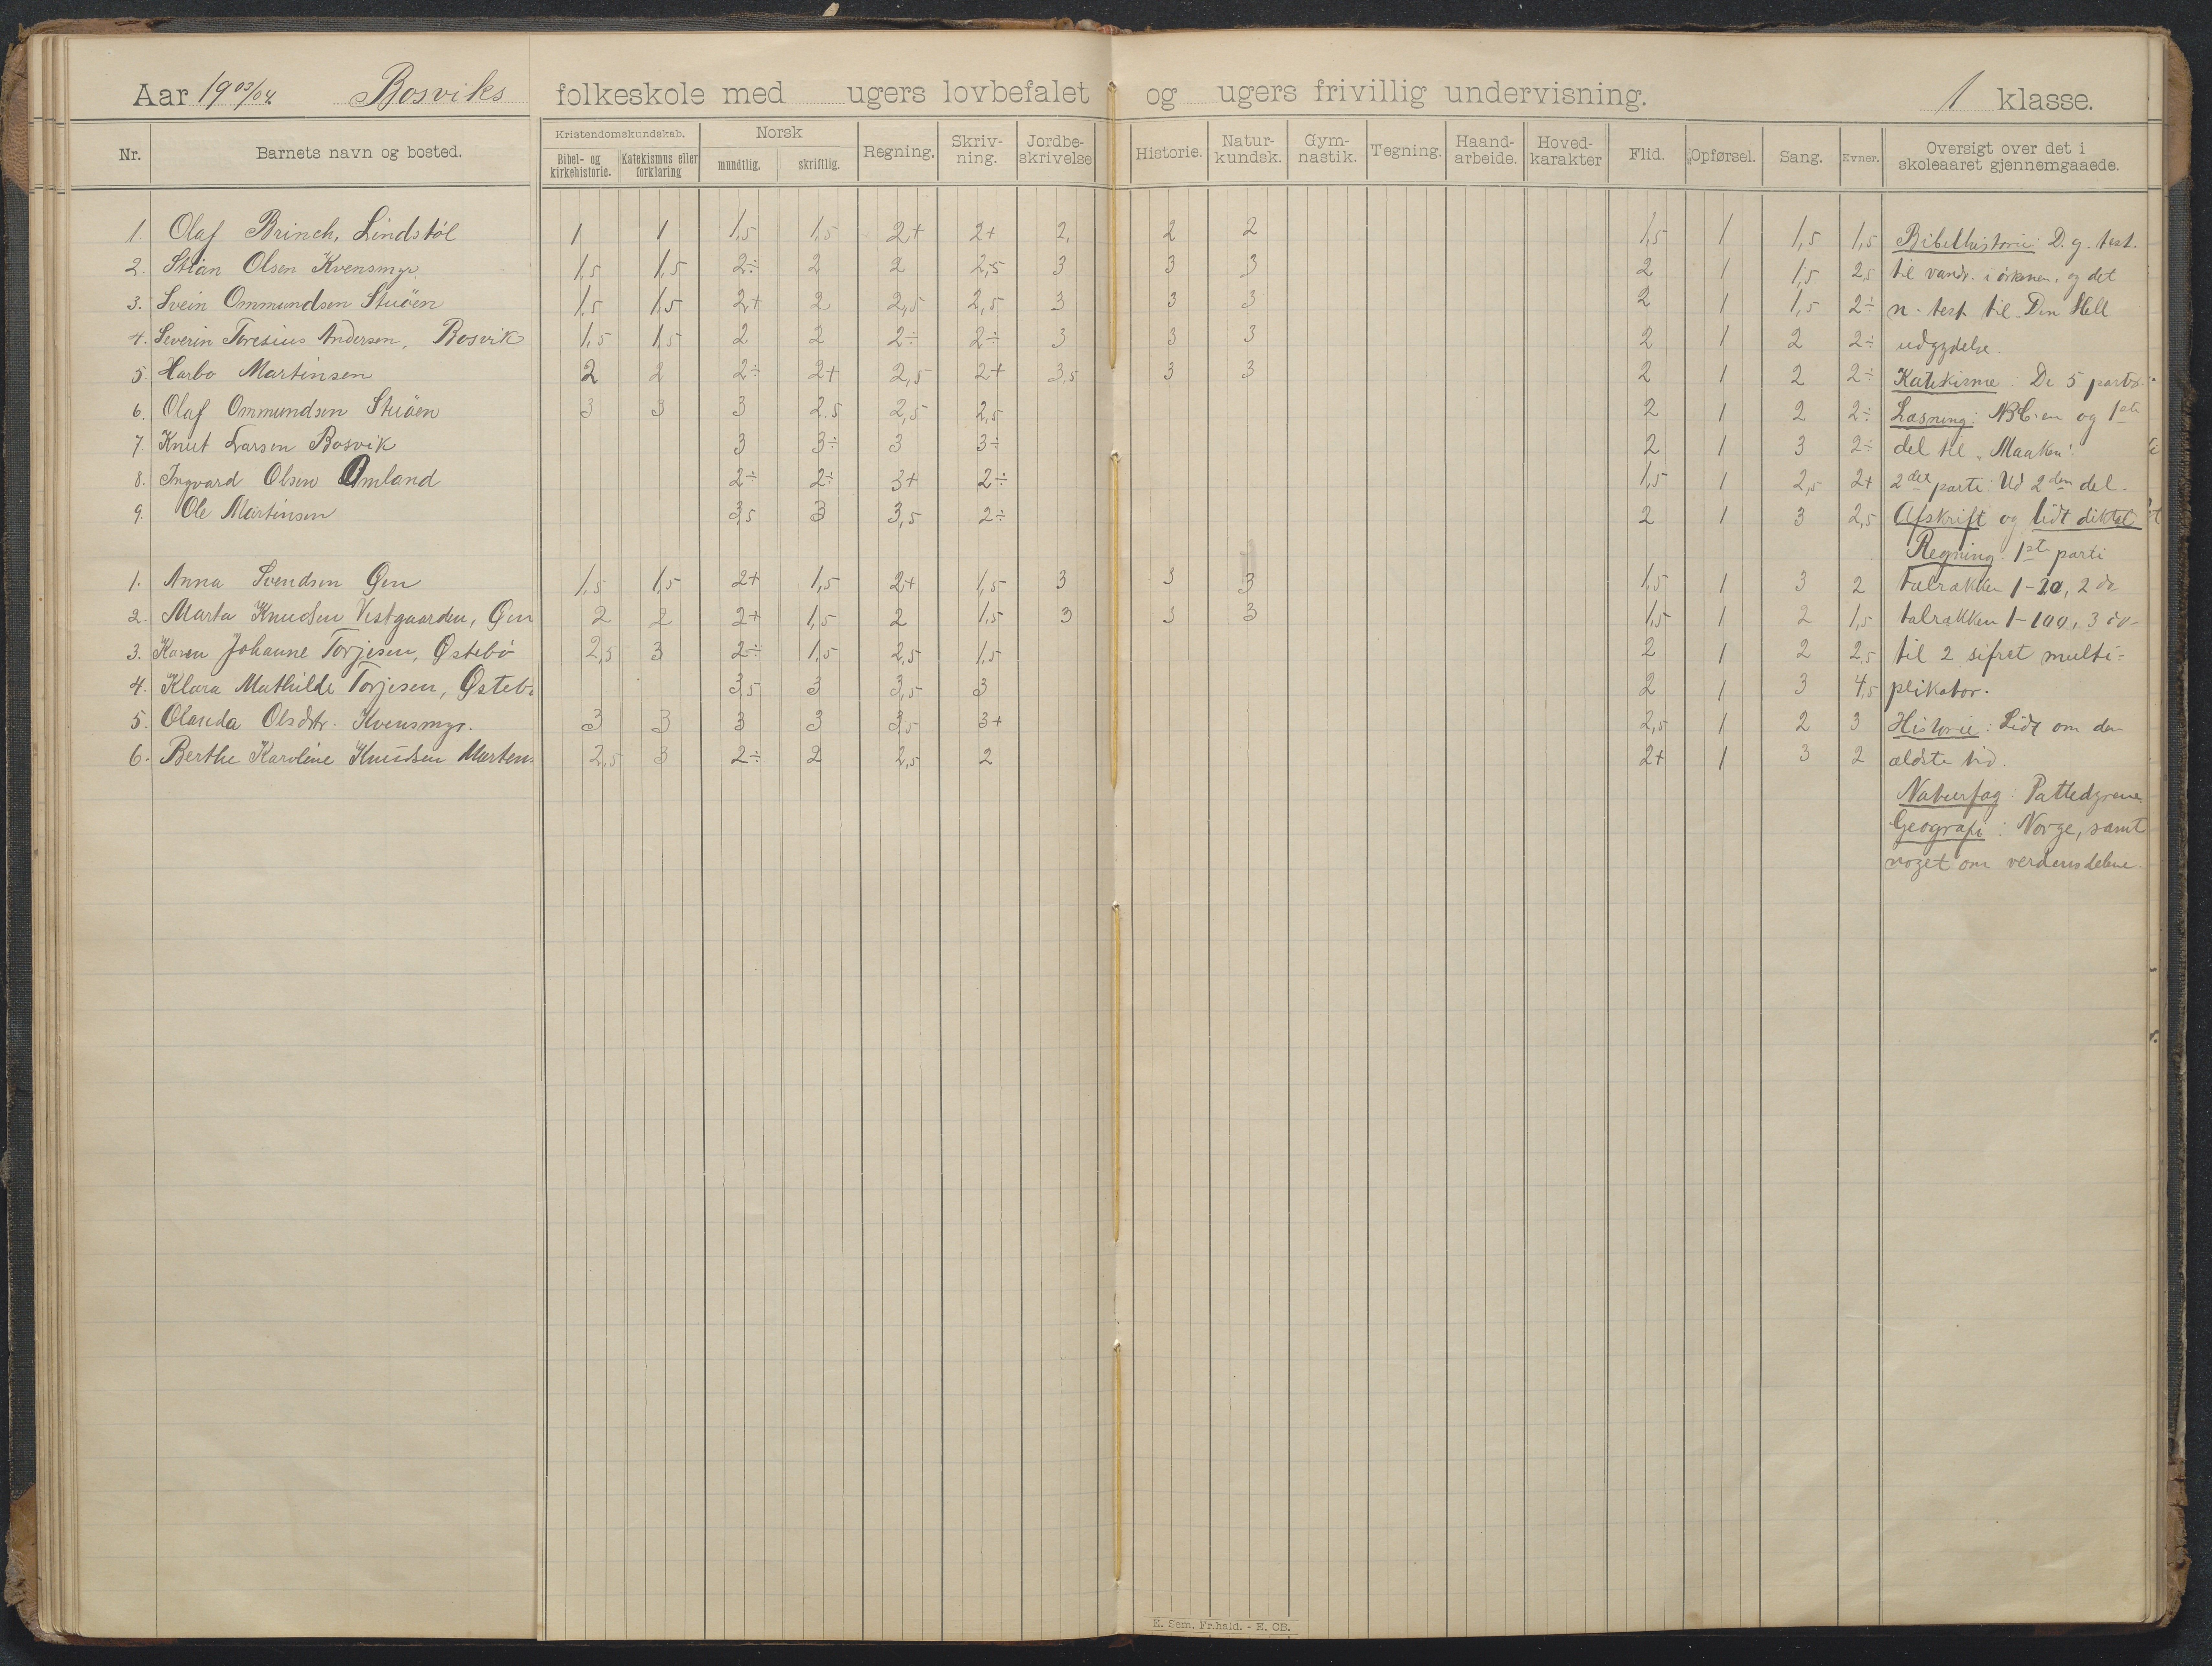 Aar 1903/04. Bosviks folkeskole med ugers lovbefalet og ugers frivillig undervisning. 1 klasse.
Nr. Barnets navn og bosted. Kristendomskundskab. Bibel- og kirkehistorie. Katekismus eller forklaring Norsk mundtlig. skriftlig. Regning. Skriv-ning. Jordbe-skrivelse Historie. Natur-kundsk. Gym-nastik. Tegning. Haand-arbeide. Hoved-karakter Flid. Opførsel. Sang. Evner. Oversigt over det i skoleaaret gjennemgaaede.
1. Olaf Brinch, Lindstøl 1 1 1,5 1,5 2+ 2+ 2, 2 2 1,5 1 1,5 1,5 Bibelhistorie: D. g. test.
2. Stian Olsen Kvensmyr 1,5 1,5 2÷ 2 2 2,5 3 3 3 2 1 1,5 2,5 til vandr. i örkenen, og det
3. Svein Ommundsen Stuöen 1,5 1,5 2+ 2 2,5 2,5 3 3 3 2 1 1,5 2÷ n. test til Den Hell
4. Severin Teresius Andersen, Bosvik 1,5 1,5 2 2 2÷ 2÷ 3 3 3 2 1 2 2÷ udgydelse.
5. Harbo Martinsen 2 2 2÷ 2+ 2,5 2+ 3,5 3 3 2 1 2 2÷ Katekisme. De 5 parter.
6. Olaf Ommundsen Stuöen 3 3 3 2.5 2,5 2,5 2 1 2 2÷ Læsning: ABC-en og 1ste
7. Knut Larsen Bosvik 3 3÷ 3 3÷ 2 1 3 2÷ del til "Maaken".
8. Ingvard Olsen Omland 2÷ 2÷ 3+ 2÷ 1,5 1 2,5 2+ 2det parti: Ud 2den del.
9. Ole Martinsen 3,5 3 3,5 2÷ 2 1 3 2,5 Afskrift og lidt diktat
Regning. 1ste parti
1. Anna Svendsen Øen 1,5 1,5 2+ 1,5 2+ 1,5 3 3 3 1,5 1 3 2 talrækken 1-20, 2 do
2. Marta Knudsen Vestgaarden, Øen 2 2 2+ 1,5 2 1,5 3 3 3 1,5 1 2 1,5 talrækken 1-100, 3 do-
3. Karen Johanne Torjesen, Østebö 2,5 3 2÷ 1,5 2,5 1,5 2 1 2 2,5 til 2 sifret multi-
4. Klara Mathilde Torjesen, Østebö 3,5 3 3,5 3 2 1 3 4,5 plikator.
5. Olanda Olsdtr. Kvensmyr. 3 3 3 3 3,5 3+ 2,5 1 2 3 Historie: Lidt om den
6. Berthe Karoline Knudsen Martens 2,5 3 2÷ 2 2,5 2 2+ 1 3 2 ældste tid.
Naturfag: Pattedyrene.
Geografi: Norge, samt
noget om verdensdelene.
E. Sem, Fr.hald. - E. CB.